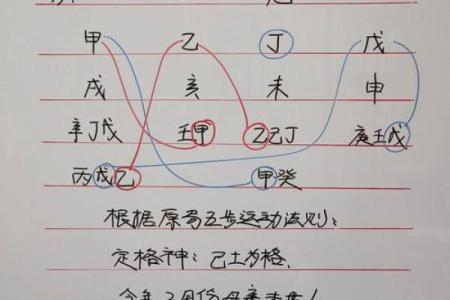 甲 乙 丁 戊
戌 亥 未 申
辛丁戊 壬甲 乙己丁 庚壬戊
丙戊乙 甲癸
根据原局五步运动法则：
定格神：己土为格.